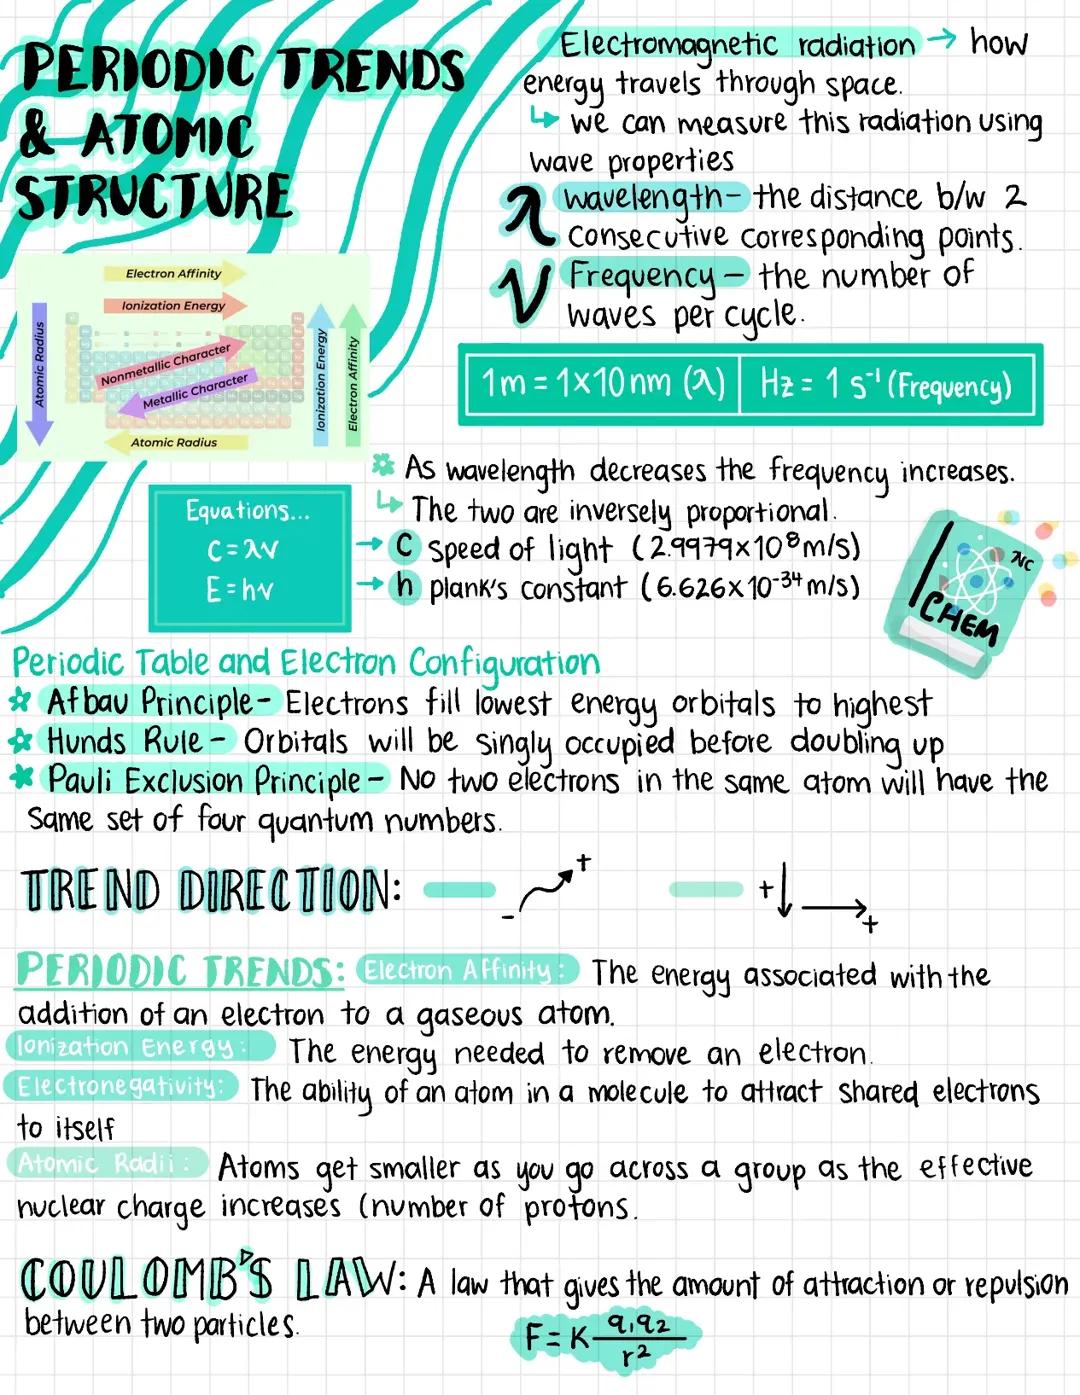 PERIODIC TRENDS
& ATOMIC
STRUCTURE
Electromagnetic radiation → how
energy travels through space.
↳ we can measure this radiation using
wave properties
λ wavelength- the distance b/w 2
consecutive corresponding points.
ν Frequency - the number of
waves per cycle.
Electron Affinity
Ionization Energy
Atomic Radius
Nonmetallic Character
Metallic Character
Ionization Energy
Electron Affinity
Atomic Radius
1m = 1x10 nm (λ) Hz = 1 s⁻¹ (Frequency)
* As wavelength decreases the frequency increases.
↳ The two are inversely proportional.
Equations...
C = λν
E = hν
→ C speed of light (2.9979x10⁸m/s)
→ h plank's constant (6.626x10⁻³⁴m/s)
λνC
CHEM
Periodic Table and Electron Configuration
* Afbau Principle- Electrons fill lowest energy orbitals to highest
* Hunds Rule - Orbitals will be singly occupied before doubling up
* Pauli Exclusion Principle - No two electrons in the same atom will have the
same set of four quantum numbers.
TREND DIRECTION: - + + +
PERIODIC TRENDS: Electron Affinity: The energy associated with the
addition of an electron to a gaseous atom.
Ionization Energy: The energy needed to remove an electron.
Electronegativity: The ability of an atom in a molecule to attract shared electrons
to itself
Atomic Radii: Atoms get smaller as you go across a group as the effective
nuclear charge increases (number of protons.
COULOMB'S LAW: A law that gives the amount of attraction or repulsion
between two particles.
F = K q₁q₂ / r²